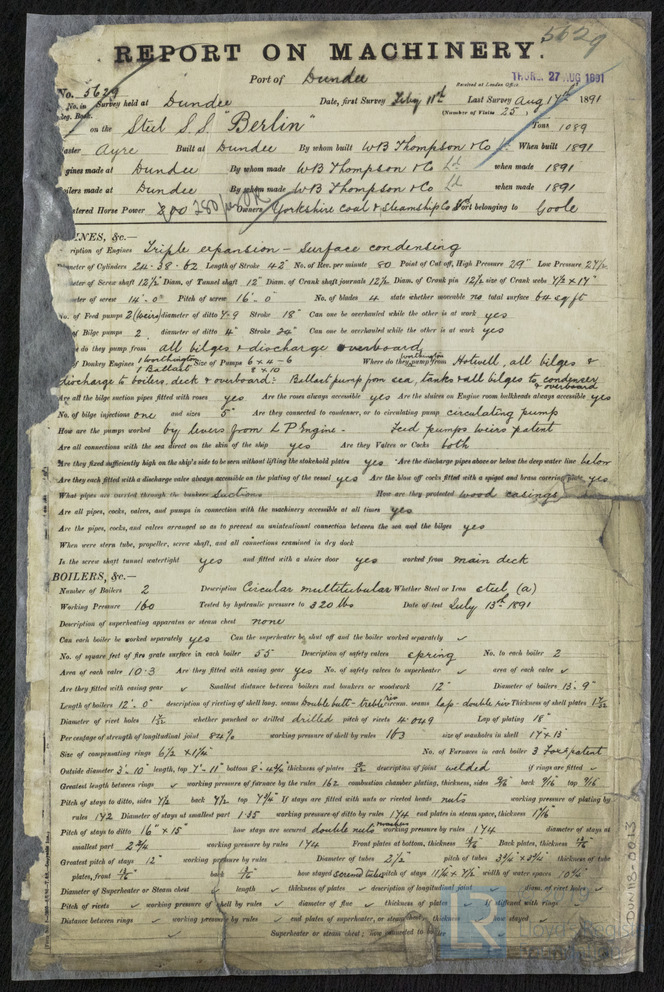 5629
REPORT ON MACHINERY.
Port of Dundee
Received at London Office THURS. 27 AUG 1891
No. 5629
No. in Survey held at Dundee Date, first Survey July 11th Last Survey Aug 17th 1891
Reg. Book. (Number of Visits 25)
on the Steel S.S. "Berlin" Tons 1089
Master Ayre Built at Dundee By whom built W B Thompson & Co Ld When built 1891
Engines made at Dundee By whom made W B Thompson & Co Ld when made 1891
Boilers made at Dundee By whom made W B Thompson & Co Ld when made 1891
Registered Horse Power 280 Owners Yorkshire Coal & Steamship Co Port belonging to Goole
ENGINES, &c.—
Description of Engines Triple expansion - Surface condensing
Diameter of Cylinders 24·38·62 Length of Stroke 42" No. of Rev. per minute 80 Point of Cut off, High Pressure 29" Low Pressure 27½
Diameter of Screw shaft 12½ Diam. of Tunnel shaft 12" Diam. of Crank shaft journals 12½ Diam. of Crank pin 12½ size of Crank webs 7½ x 17"
Diameter of screw 14'·0" Pitch of screw 16'·0" No. of blades 4 state whether moveable no total surface 64 sq ft
No. of Feed pumps 2 (Weirs) diameter of ditto 7·9 Stroke 18" Can one be overhauled while the other is at work yes
No. of Bilge pumps 2 diameter of ditto 4" Stroke 24" Can one be overhauled while the other is at work yes
Where do they pump from all bilges & discharge overboard
No. of Donkey Engines 1 Worthington 1 Ballast Size of Pumps 6 x 4 - 6 8 x 10 Where do they pump from Worthington Hotwell, all bilges &
discharge to boilers, deck & overboard: Ballast pump from sea, tanks & all bilges to condenser & overboard
Are all the bilge suction pipes fitted with roses yes Are the roses always accessible yes Are the sluices on Engine room bulkheads always accessible yes
No. of bilge injections one and sizes 5" Are they connected to condenser, or to circulating pump circulating pump
How are the pumps worked by levers from L P Engine - Feed pumps Weirs patent
Are all connections with the sea direct on the skin of the ship yes Are they Valves or Cocks both
Are they fixed sufficiently high on the ship's side to be seen without lifting the stokehold plates yes Are the discharge pipes above or below the deep water line below
Are they each fitted with a discharge valve always accessible on the plating of the vessel yes Are the blow off cocks fitted with a spigot and brass covering plate yes
What pipes are carried through the bunkers Suctions How are they protected wood casings
Are all pipes, cocks, valves, and pumps in connection with the machinery accessible at all times yes
Are the pipes, cocks, and valves arranged so as to prevent an unintentional connection between the sea and the bilges yes
When were stern tube, propeller, screw shaft, and all connections examined in dry dock
Is the screw shaft tunnel watertight yes and fitted with a sluice door yes worked from main deck
BOILERS, &c.—
Number of Boilers 2 Description Circular multitubular Whether Steel or Iron steel (a)
Working Pressure 160 Tested by hydraulic pressure to 320 lbs Date of test July 13th 1891
Description of superheating apparatus or steam chest none
Can each boiler be worked separately yes Can the superheater be shut off and the boiler worked separately ✓
No. of square feet of fire grate surface in each boiler 55 Description of safety valves spring No. to each boiler 2
Area of each valve 10·3 Are they fitted with easing gear yes No. of safety valves to superheater ✓ area of each valve ✓
Are they fitted with easing gear ✓ Smallest distance between boilers and bunkers or woodwork 12" Diameter of boilers 13'·9"
Length of boilers 12'·0" description of riveting of shell long. seams Double butt-treble riv circum. seams lap-double riv Thickness of shell plates 1 7/32
Diameter of rivet holes whether punched or drilled drilled pitch of rivets 4·049 Lap of plating 18"
Percentage of strength of longitudinal joint 84% working pressure of shell by rules 163 size of manholes in shell 17 x 13
Size of compensating rings No. of Furnaces in each boiler 3 Fox's patent
Outside diameter 3'·10" length, top 7'·11" bottom 8'·4¾" thickness of plates description of joint welded if rings are fitted ✓
Greatest length between rings ✓ working pressure of furnace by the rules 162 combustion chamber plating, thickness, sides 9/16 back 9/16 top 9/16
Pitch of stays to ditto, sides 7½ back 7½ top 7¾ If stays are fitted with nuts or riveted heads nuts working pressure of plating by
rules 172 Diameter of stays at smallest part 1·35 working pressure of ditto by rules 174 end plates in steam space, thickness
Pitch of stays to ditto 16" x 15" how stays are secured double nuts washers working pressure by rules 174 diameter of stays at
smallest part working pressure by rules 174 Front plates at bottom, thickness Back plates, thickness
Greatest pitch of stays 12" working pressure by rules Diameter of tubes 2½" pitch of tubes thickness of tube
plates, front back how stayed second tubes pitch of stays width of water spaces
Diameter of Superheater or Steam chest ✓ length ✓ thickness of plates ✓ description of longitudinal joint ✓ diam. of rivet holes ✓
Pitch of rivets ✓ working pressure of shell by rules ✓ diameter of flue ✓ thickness of plates ✓ If stiffened with rings ✓
Distance between rings ✓ working pressure by rules ✓ end plates of superheater, or steam chest; thickness how stayed ✓
Superheater or steam chest; how connected to boiler
DUN118-0013
LR